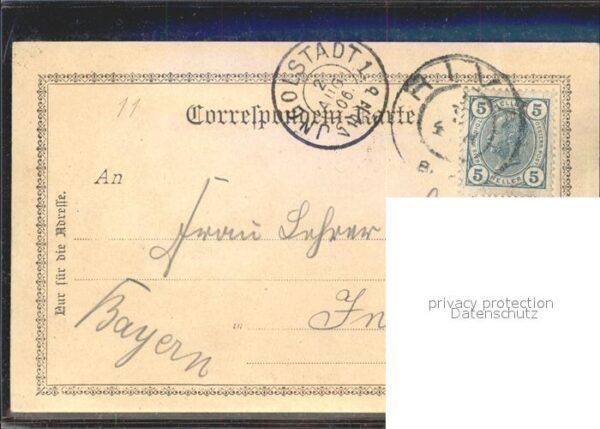 INGOLSTADT 1.
2.
AUG
06.
RIV
11
Correspondenz-Karte
5 HELLER 5
5 HELLER 5
An
Nur für die Adresse.
Frau Lehrer
Bayern
in In
privacy protection
Datenschutz